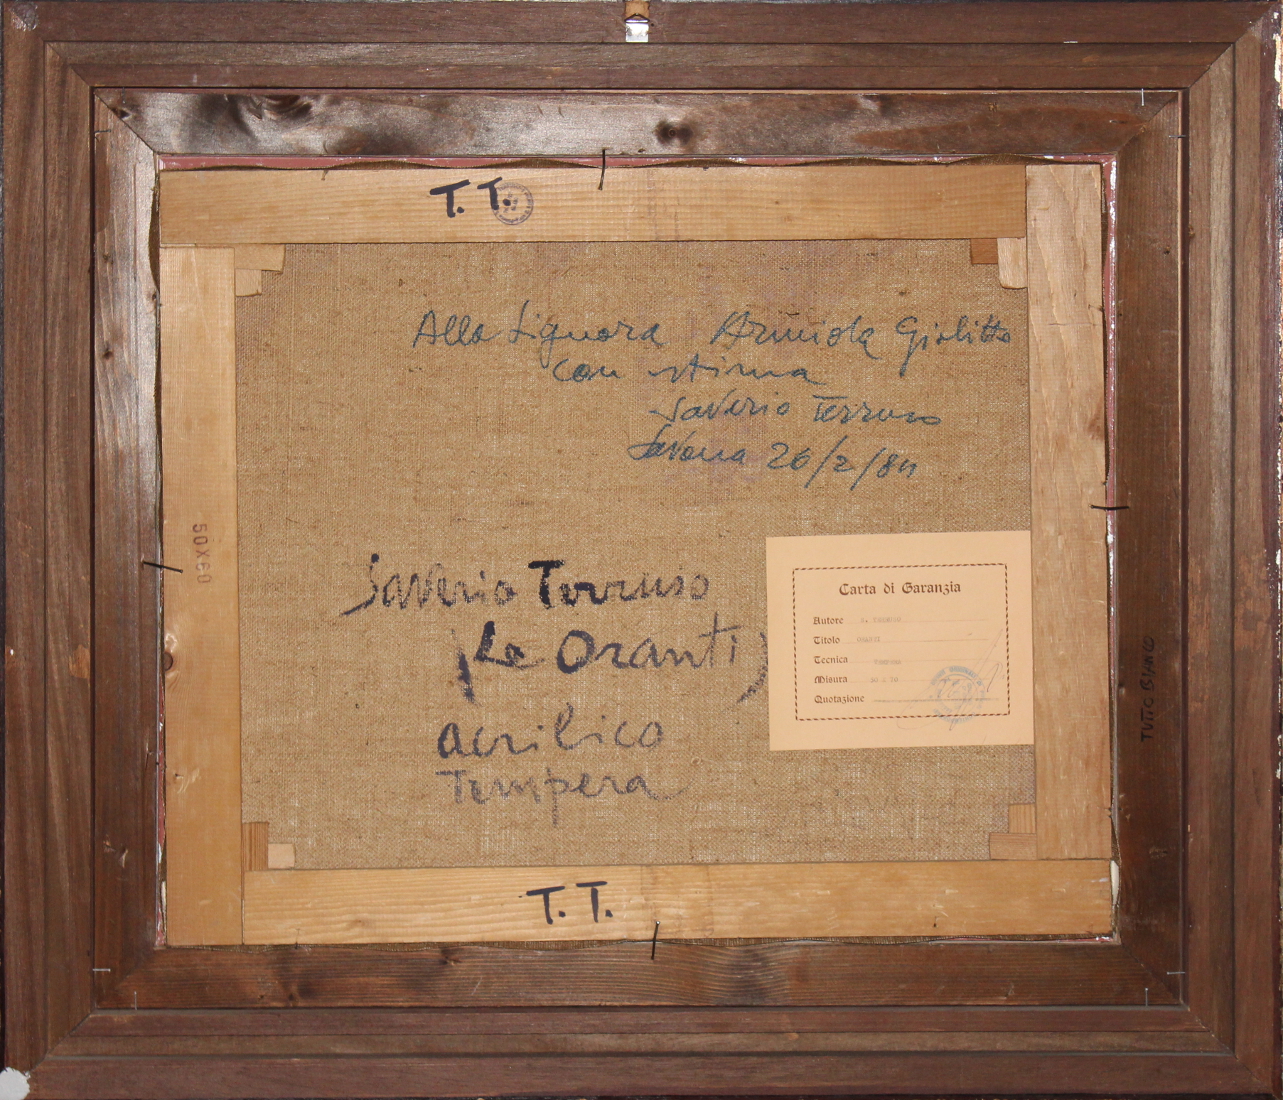 T. T.
Alla Signora Armida Giolitto
con stima
Saverio Terruso
Savona 26/2/84
50X60
Saverio Terruso
(Le Oranti)
acrilico
Tempera
Carta di Garanzia
Autore
Titolo
Tecnica
Misura
Quotazione
TUTTO BIANCO
T. T.